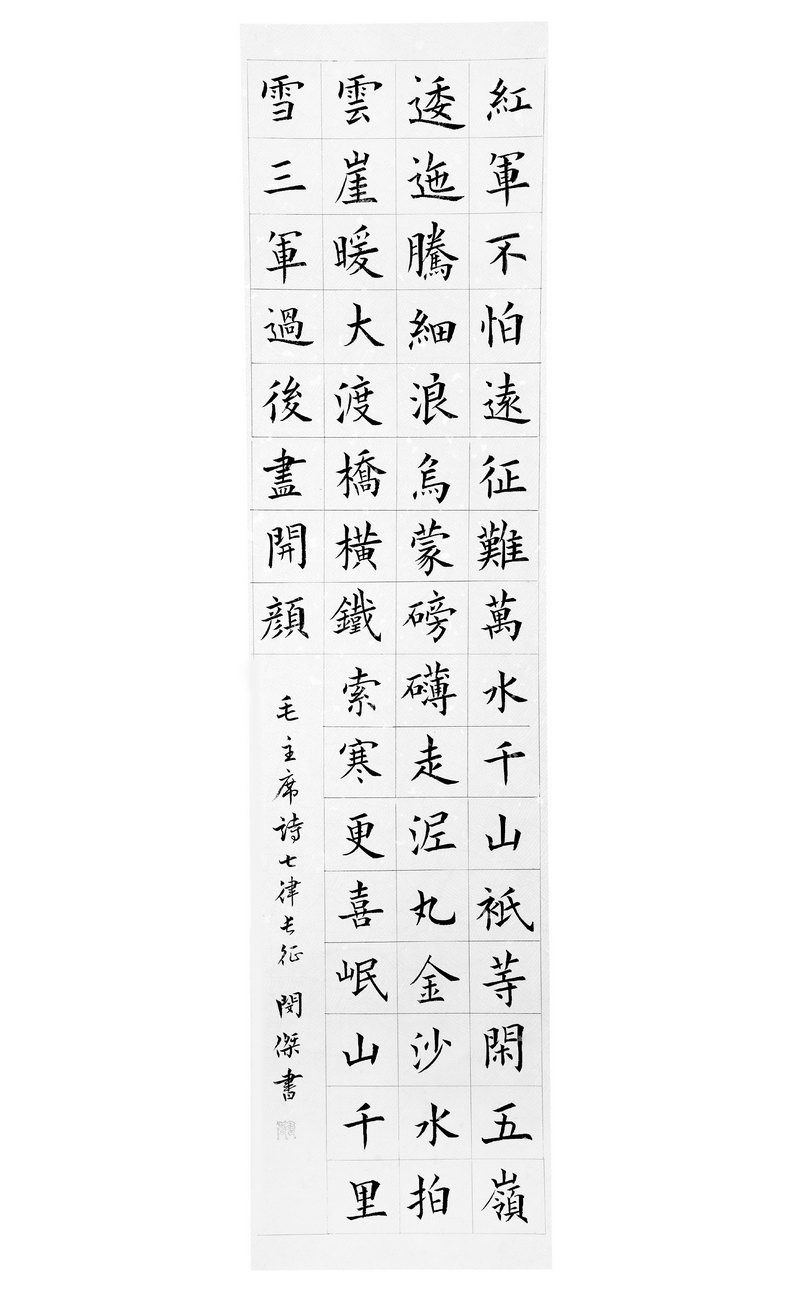 紅軍不怕遠征難萬水千山衹等閑五嶺
逶迤騰細浪烏蒙磅礴走泥丸金沙水拍
雲崖暖大渡橋橫鐵索寒更喜岷山千里
雪三軍過後盡開顏
毛主席詩七律長征 閔傑書